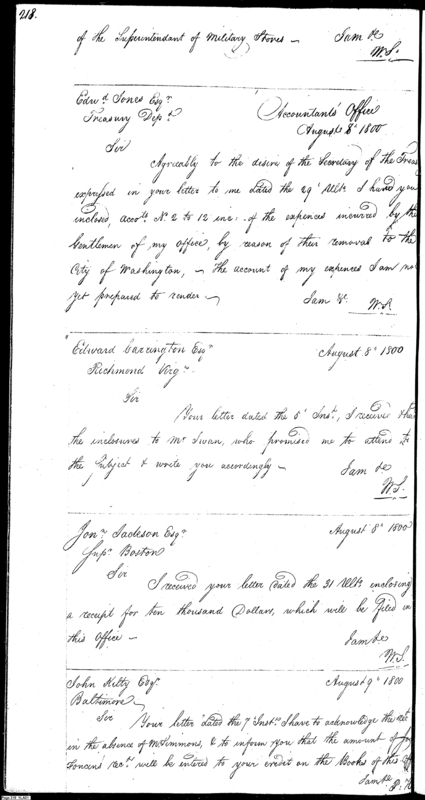 218.
of the Superintendent of Military Stores – I am &c
W.S.
Edwd Jones Esqr
Treasury Dept
Accountants Office
August 8th 1800
Sir
Agreeably to the desire of the Secretary of the Treas
expressed in your letter to me dated the 29th Ulto I hand you
inclosed, accots No 2 to 12 inc: of the expences incurred by the
Gentlemen of my office, by reason of their removal to the
City of Washington, – the account of my expences I am no
yet prepared to render –
I am &c
W.S.
Edward Carrington Esqr
Richmond Virga
August 8th 1800
Sir
Your letter dated the 5th Inst, I received &
the inclosures to Mr Swan, who promised me to attend to
the subject & write you accordingly –
I am &c
W.S.
Jonn Jackson Esqr
Supr Boston
August 8th 1800
Sir
I received your letter dated the 31 Ulto enclosing
a receipt for ten thousand Dollars, which will be filed in
this Office –
I am &c
W.S.
John Kilty Esqr
Baltimore
August 9th 1800
Sir
Your letter dated the 7th Inst I have to acknowledge the rect
in the absence of Mr Simmons, & to inform you that the amount of
rect will be entered to your credit on the Books of this
I am &c